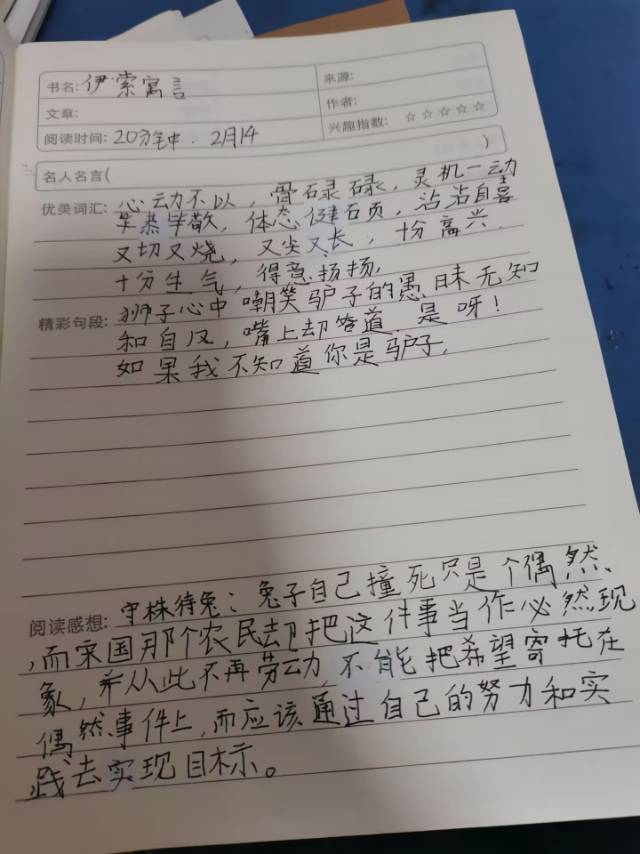 书名: 伊索寓言
来源:
文章:
作者:
阅读时间: 20分钟. 2月14
兴趣指数: ☆☆☆☆☆
名人名言( )
优美词汇: 心动不以, 骨碌碌, 灵机一动
毕恭毕敬, 体态健硕, 沾沾自喜
又切又烧, 又尖又长, 十份高兴.
十分生气, 得意扬扬,
精彩句段: 狮子心中嘲笑驴子的愚昧无知
和自, 嘴上却答道. 是呀!
如果我不知道你是驴子,
阅读感想: 守株待兔: 兔子自己撞死只是个偶然、
,而宋国那个农民却把这件事当作必然现
象, 并从此不再劳动, 不能把希望寄托在
偶然事件上, 而应该通过自己的努力和实
践去实现目标。